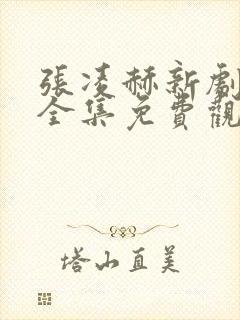 張凌赫新劇
全集免費觀
塔山直美